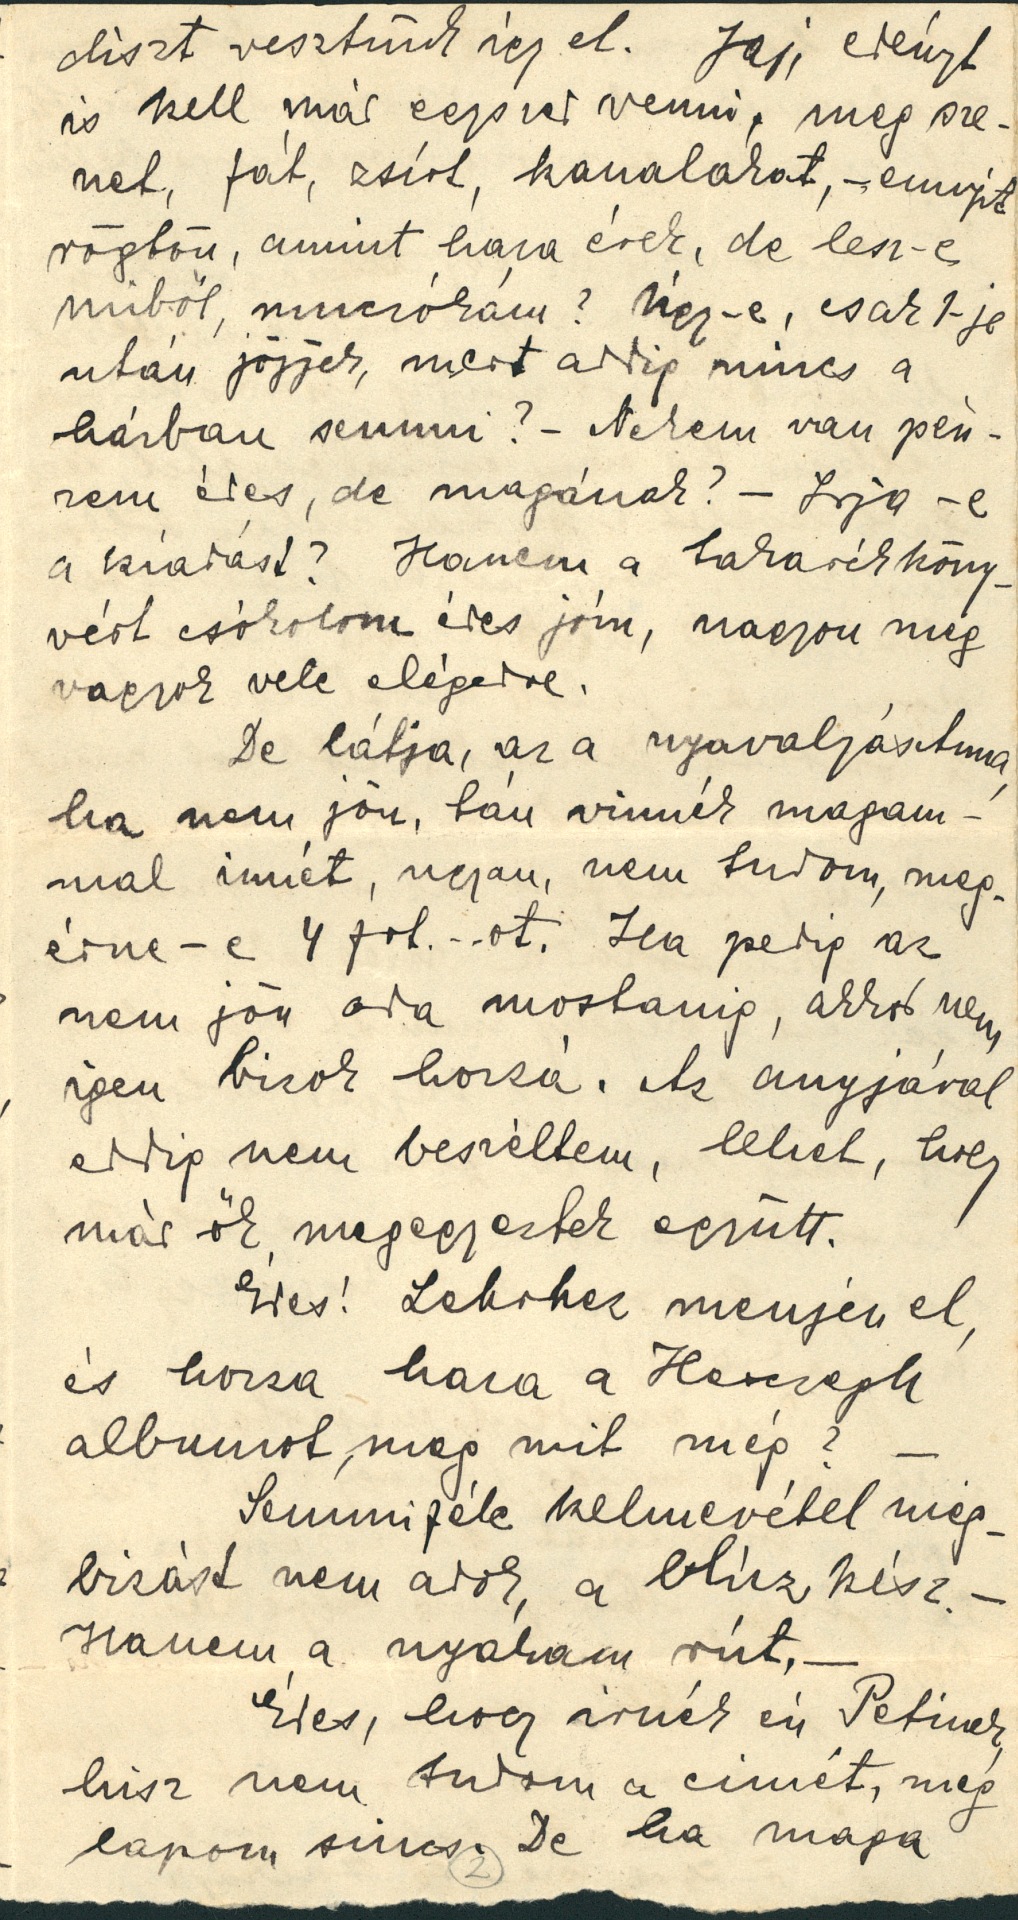 diszt vesztünk így el. Jaj, edényt
is kell már egyszer venni, meg sze-
net, fát, zsírt, kanalakat, – ennyit
rögtön, amint haza érek, de lesz-e
miből, mucsókám? Úgy-e, csak 1-je
után jöjjek, mert addig nincs a
házban semmi? – Nekem van pén-
zem édes, de magának? – Irja-e
a kiadást? Hanem a takarékköny-
vért csókolom édes jóm, nagyon meg
vagyok vele elégedve.
De látja, az a nyavalyás
ha nem jön, tán vinnék magam-
mal innét, ugyan, nem tudom, meg-
érne-e 4 frt.--ot. Ha pedig az
nem jön oda mostanig, akkor nem
igen bizok hozzá. Az anyjával
eddig nem beszéltem, lehet, hogy
már ők megegyeztek együtt.
Édes! menjen el,
és hozza haza a Herczegh
albumot, meg mit még? –
Semmiféle kelmevétel meg-
bizást nem adok, a blúz kész. –
Hanem a nyakam rút, –
Édes, hogy irnék én Petinek,
hisz nem tudom a cimét, még
lapom sincs. De ha maga
2